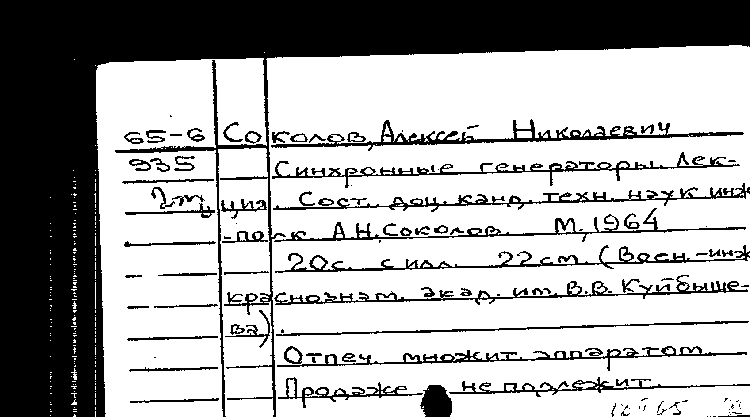 65-6 Соколов, Алексей Николаевич
935 Синхронные генераторы. Лек-
2т, ция. Сост. доц. канд. техн. наук инж
-полк А.Н.Соколов. М, 1964
20с. с илл. 22см (Воен.-инж
краснознам. акад. им. В.В. Куйбыше-
ва).
Отпеч. множит. аппаратом
Продаже не подлежит.
65